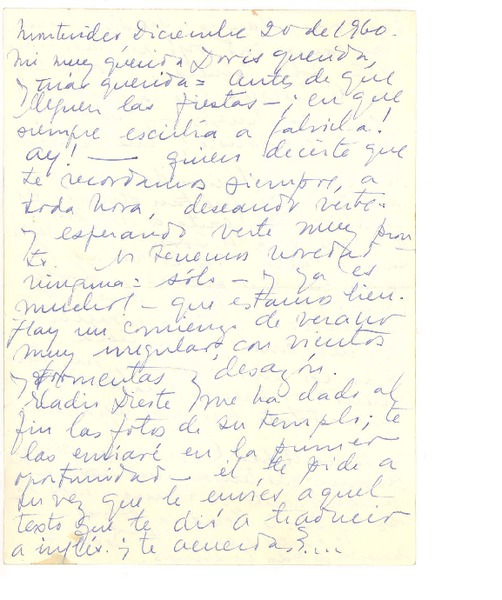 Montevideo Diciembre 20 de 1960.
Mi muy querida Doris querida,
y más querida: Antes de que
lleguen las fiestas – ¡en que
siempre escribía a Gabriela!
ay! — quiero decirte que
te recordamos siempre, a
toda hora, deseando verte
y esperando verte muy pron
to. No tenemos novedad
ninguna: sólo – y ya es
mucho! – que estamos bien.
Hay un comienzo de verano
muy irregular, con vientos
y tormentas y desazón.
Eladio Dieste me ha dado al
fin las fotos de su templo; te
las enviaré en la primer
oportunidad – él te pide a
su vez que le envíes aquel
texto que te dió a traducir
a inglés. ¿te acuerdas?....